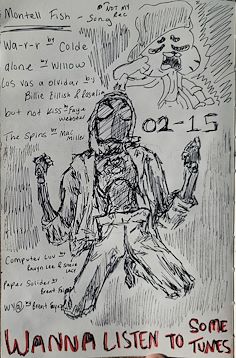 Montell Fish -
* NOT MY Song Rec
Wa-r-r by Colde
alone by Willow
Los vas a olvidar by:
Billie Eilish & Rosalia
but not kiss by Faye Webster
The Spins by Mac Miller
02-15
Computer Luv by
Ravyn Lee & Steve Lacy
Paper Soldier by
Brent Faiyaz
WY@ by Brent Faiyaz
WANNA LISTEN TO SOME TUNES